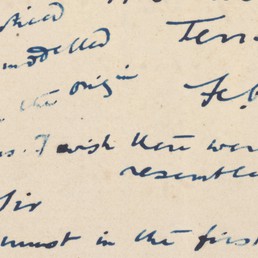 modelled
Terr
the origin
Feb
s. I wish there wer
resembla
Sir
must in the first